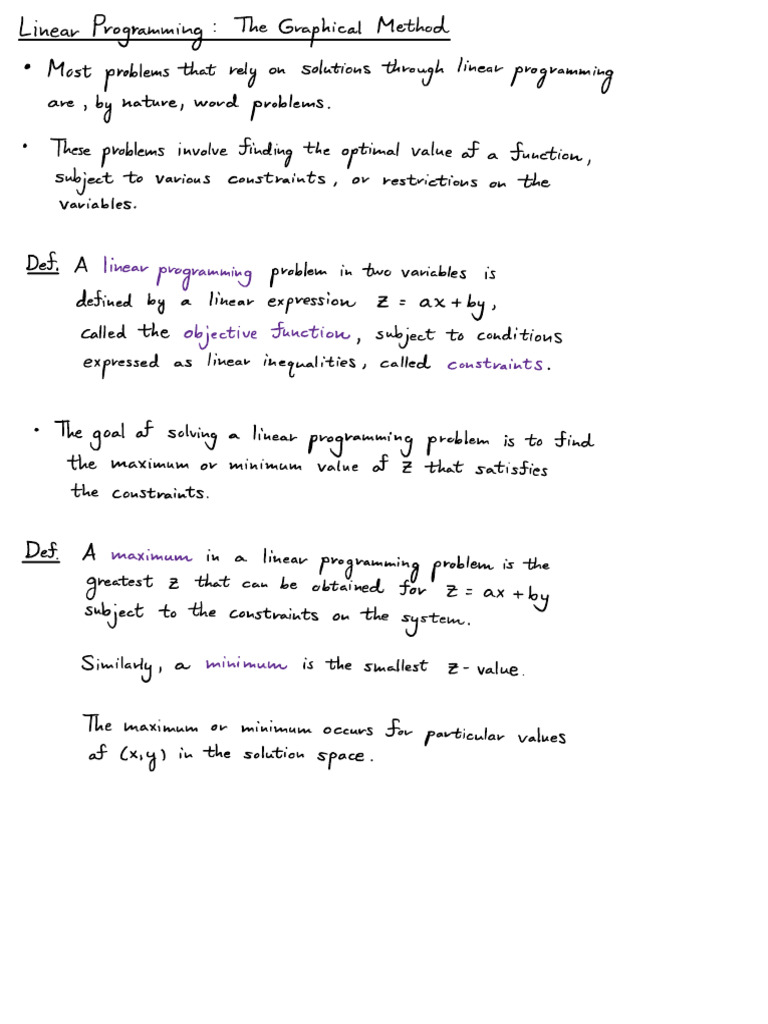 Linear Programming: The Graphical Method
• Most problems that rely on solutions through linear programming
are, by nature, word problems.
• These problems involve finding the optimal value of a function,
subject to various constraints, or restrictions on the
variables.
Def. A linear programming problem in two variables is
defined by a linear expression z = ax + by,
called the objective function, subject to conditions
expressed as linear inequalities, called constraints.
• The goal of solving a linear programming problem is to find
the maximum or minimum value of z that satisfies
the constraints.
Def. A maximum in a linear programming problem is the
greatest z that can be obtained for z = ax + by
subject to the constraints on the system.
Similarly, a minimum is the smallest z-value.
The maximum or minimum occurs for particular values
of (x,y) in the solution space.